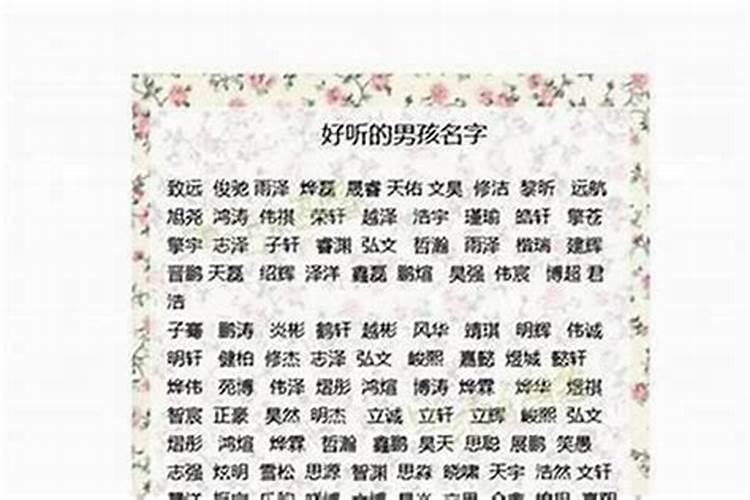 好听的男孩名字
致远 俊驰 雨泽 烨磊 晟睿 天佑 文昊 修洁 黎昕 远航
旭尧 鸿涛 伟祺 荣轩 越泽 浩宇 瑾瑜 皓轩 擎苍
擎宇 志泽 子轩 睿渊 弘文 哲瀚 雨泽 楷瑞 建辉
晋鹏 天磊 绍辉 泽洋 鑫磊 鹏煊 昊强 伟宸 博超 君
浩
子骞 鹏涛 炎彬 鹤轩 越彬 风华 靖琪 明辉 伟诚
明轩 健柏 修杰 志泽 弘文 峻熙 嘉懿 煜城 懿轩
烨伟 苑博 伟泽 熠彤 鸿煊 博涛 烨霖 烨华 煜祺
智宸 正豪 昊然 明杰 立诚 立轩 立辉 峻熙 弘文
熠彤 鸿煊 烨霖 哲瀚 鑫鹏 昊天 思聪 展鹏 笑愚
志强 炫明 雪松 思源 智渊 思淼 晓啸 天宇 浩然 文轩